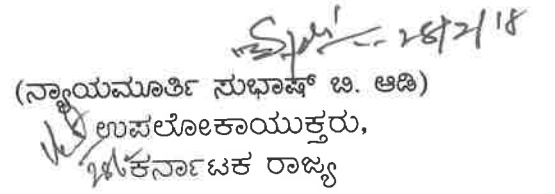 28/2/18
(ನ್ಯಾಯಮೂರ್ತಿ ಸುಭಾಷ್ ಬಿ. ಆಡಿ)
ಉಪಲೋಕಾಯುಕ್ತರು,
ಕರ್ನಾಟಕ ರಾಜ್ಯ